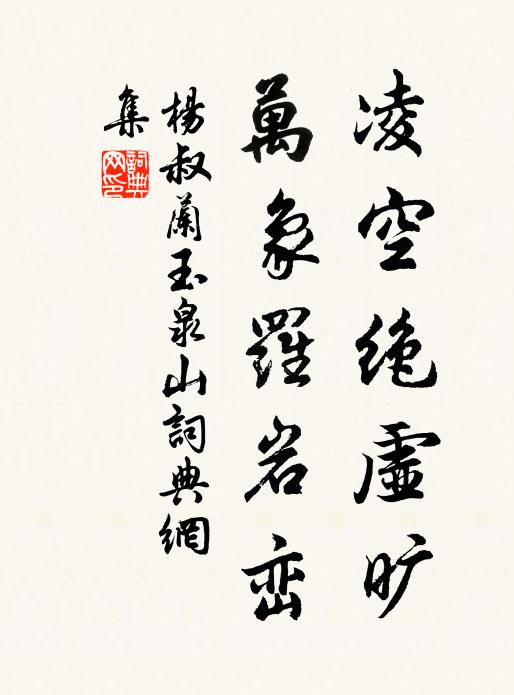 凌空绝虚旷
萬象羅岩峦
楊叔蘭玉泉山詞典網
集
詞典网印